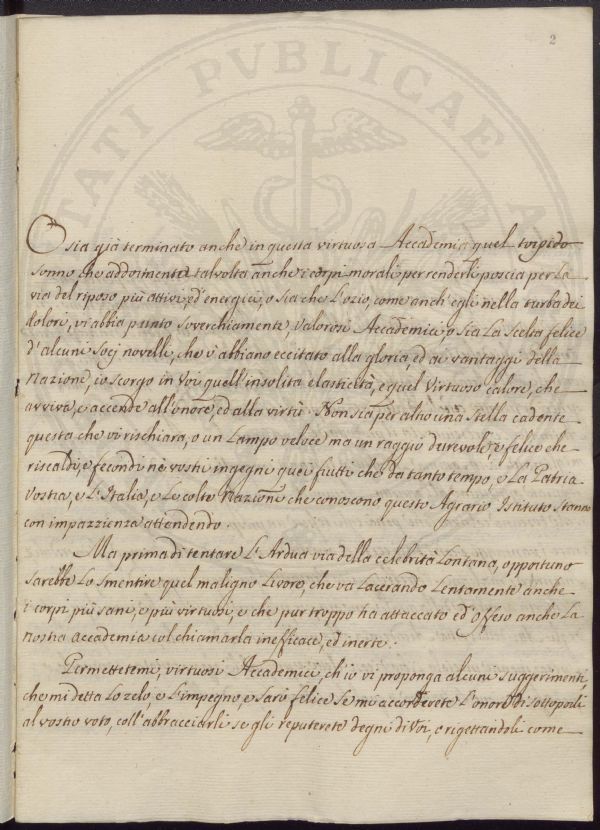 2
O sia già terminato anche in questa virtuosa Accademia quel torpido
sonno che addormenta talvolta anche i corpi morali per renderli poscia per la
via del riposo più attivi, ed energici, o sia che l'ozio, come anch'egli nella turba dei
dolori, vi abbia punto soverchiamente, valorosi Accademici, o sia la scelta felice
d'alcuni Socj novelli, che v'abbiano eccitato alla gloria, ed ai vantaggi della
Nazione, io scorgo in Voi quell'insolita elasticità, e quel virtuoso calore, che
avviva, e accende all'onore, ed alla virtù. Non sia per altro una stella cadente
questa che vi rischiara, o un lampo veloce ma un raggio durevole, e felice che
riscaldi, e fecondi ne' vostri ingegni quei frutti che da tanto tempo, e la Patria
vostra, e l'Italia, e le colte Nazioni che conoscono questo Agrario Istituto stanno
con impazzienza attendendo.
Ma prima di tentare l'Ardua via della celebrità lontana, opportuno
sarebbe lo smentire quel maligno livore, che va lacerando lentamente anche
i corpi più sani, e più virtuosi, e che pur troppo ha attaccato ed offeso anche la
nostra accademia col chiamarla inefficace, ed inerte.
Permettetemi, virtuosi Accademici, ch'io vi proponga alcuni suggerimenti,
che mi detta lo zelo, e l'impegno, e sarò felice se mi accorderete l'onore di sottoporli
al vostro voto, coll'abbracciarli se gli reputerete degni di Voi, e rigettandoli come
TATI PVBLICAE